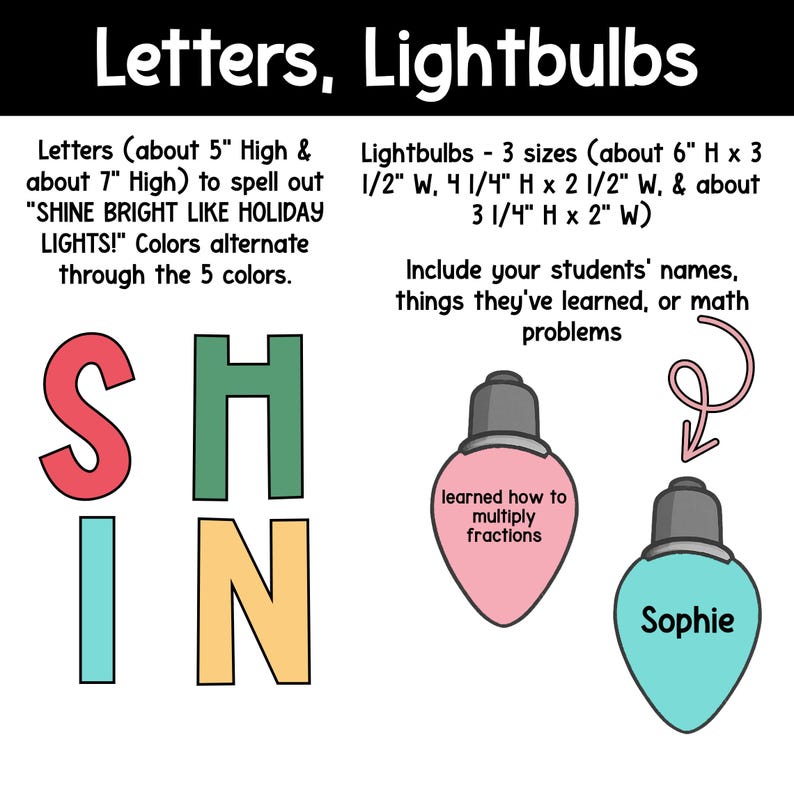 Letters, Lightbulbs
Letters (about 5" High &
about 7" High) to spell out
"SHINE BRIGHT LIKE HOLIDAY
LIGHTS!" Colors alternate
through the 5 colors.
Lightbulbs - 3 sizes (about 6" H x 3
1/2" W, 4 1/4" H x 2 1/2" W, & about
3 1/4" H x 2" W)
Include your students' names,
things they've learned, or math
problems
S H
I N
learned how to
multiply
fractions
Sophie